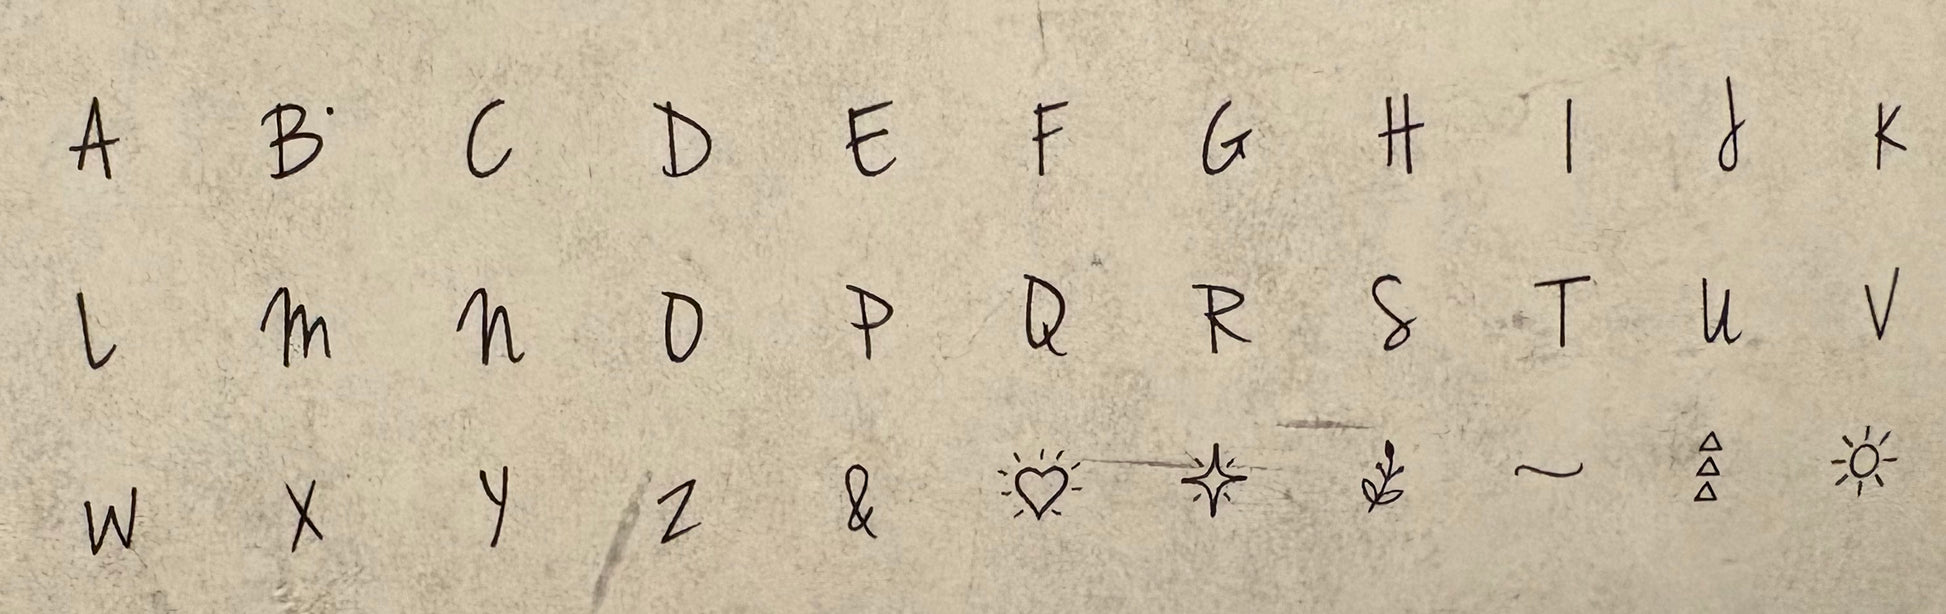 A B C D E F G H I J K
L M N O P Q R S T U V
W X Y Z & ~